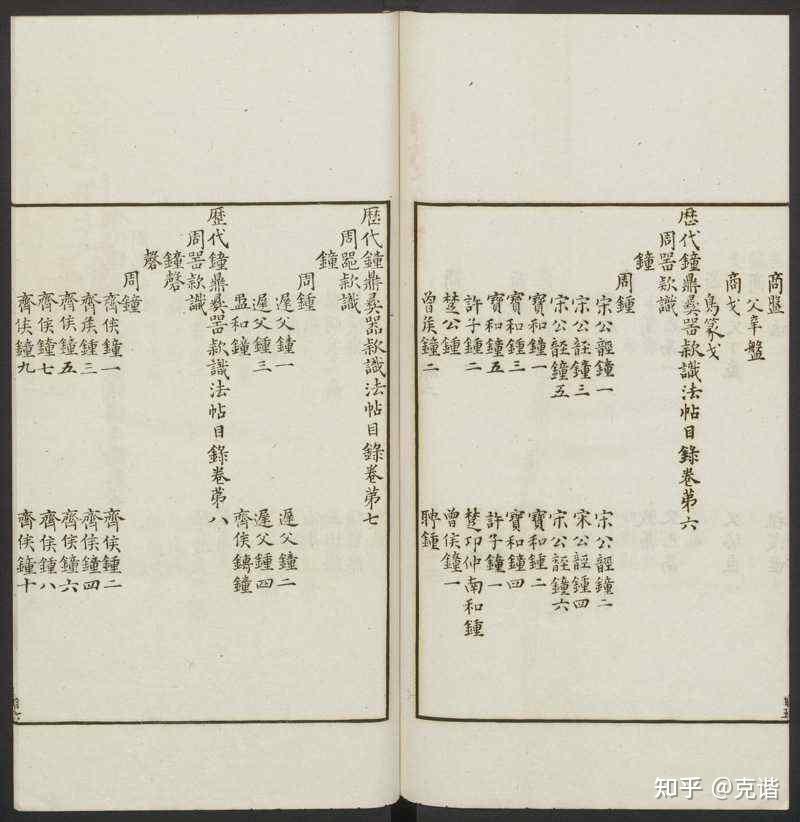 商盤
父辛盤
商戈
鳥篆戈
歷代鐘鼎彝器款識法帖目錄卷第六
周器款識
鐘
周鐘
宋公誙鐘一　宋公誙鐘二
宋公誙鐘三　宋公誙鐘四
宋公誙鐘五　宋公誙鐘六
寶和鐘一　寶和鐘二
寶和鐘三　寶和鐘四
寶和鐘五　許子鐘一
許子鐘二　楚卭仲南和鐘
楚公鐘　曾侯鐘一
曾侯鐘二　聘鐘
歷代鐘鼎彝器款識法帖目錄卷第七
周器款識
鐘
周鐘
遲父鐘一　遲父鐘二
遲父鐘三　遲父鐘四
盄和鐘　齊侯鎛鐘
歷代鐘鼎彝器款識法帖目錄卷第八
周器款識
鐘磬
磬
周鐘
齊侯鐘一　齊侯鐘二
齊侯鐘三　齊侯鐘四
齊侯鐘五　齊侯鐘六
齊侯鐘七　齊侯鐘八
齊侯鐘九　齊侯鐘十
知乎 @克谐